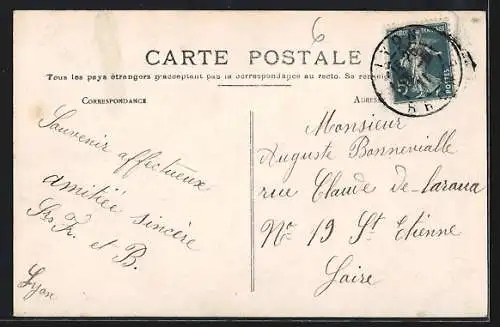 6
CARTE POSTALE
Tous les pays étrangers n'acceptant pas la correspondance au recto. Se
CORRESPONDANCE
ADRESSE
Souvenir affectueux
amitiée sincère
Fr. et B.
Lyon
LYON
5
POSTES
Monsieur
Auguste Bonnevialle
rue Claude de-laraua
Nº 19 St Etienne
Loire